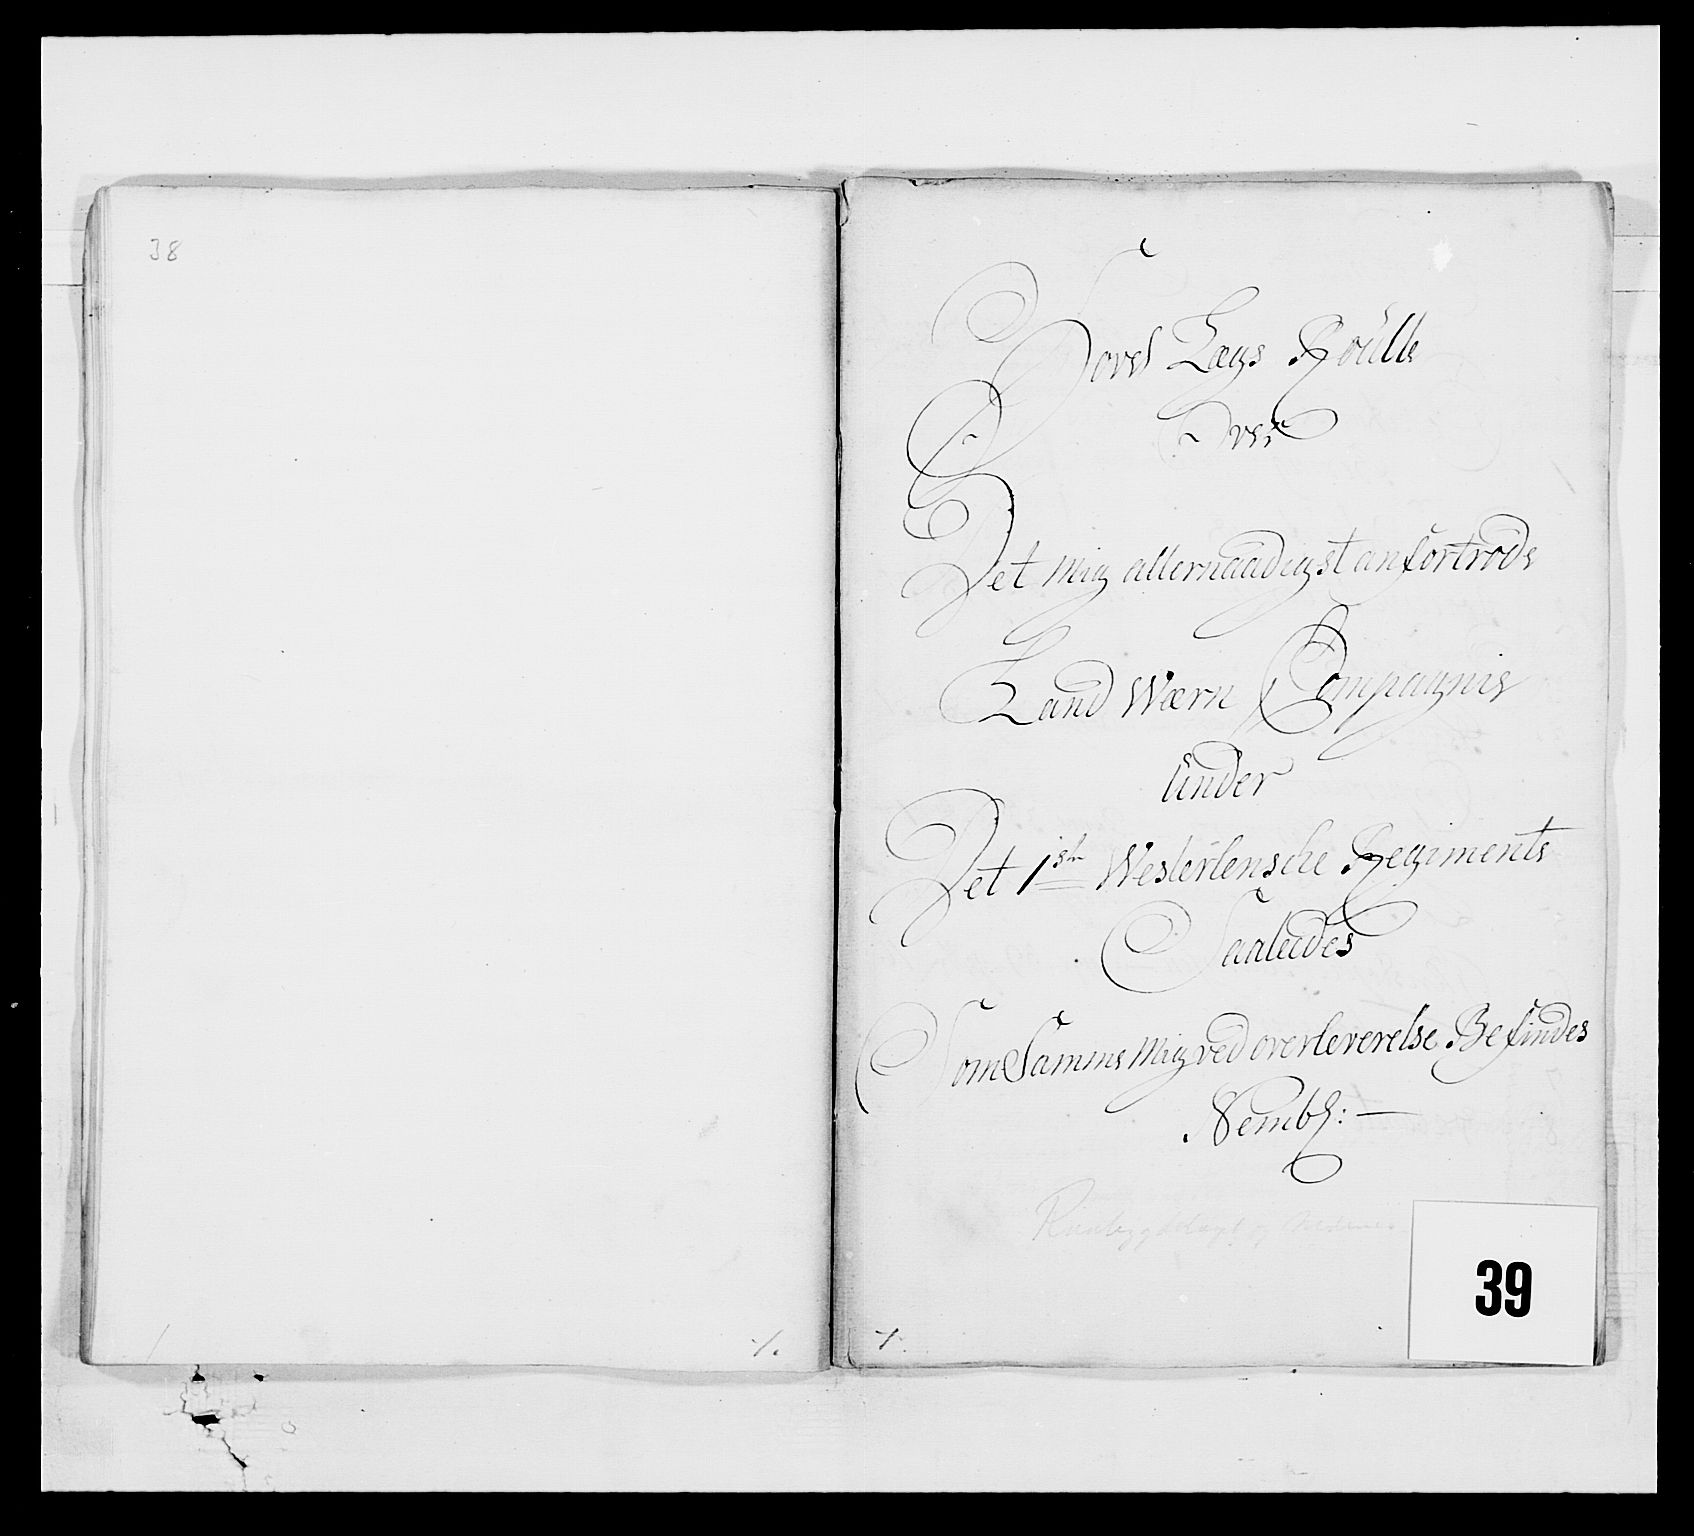 38
Hoved Lægs Roulle
Over
Det Mig allernaadigst anfortrode
Land Wærn Compagnie
under
Det 1ste Westerlensche Regimente
Saaledes
Som Samme Mig ved overleverelse Befindes
Nembl: —
39